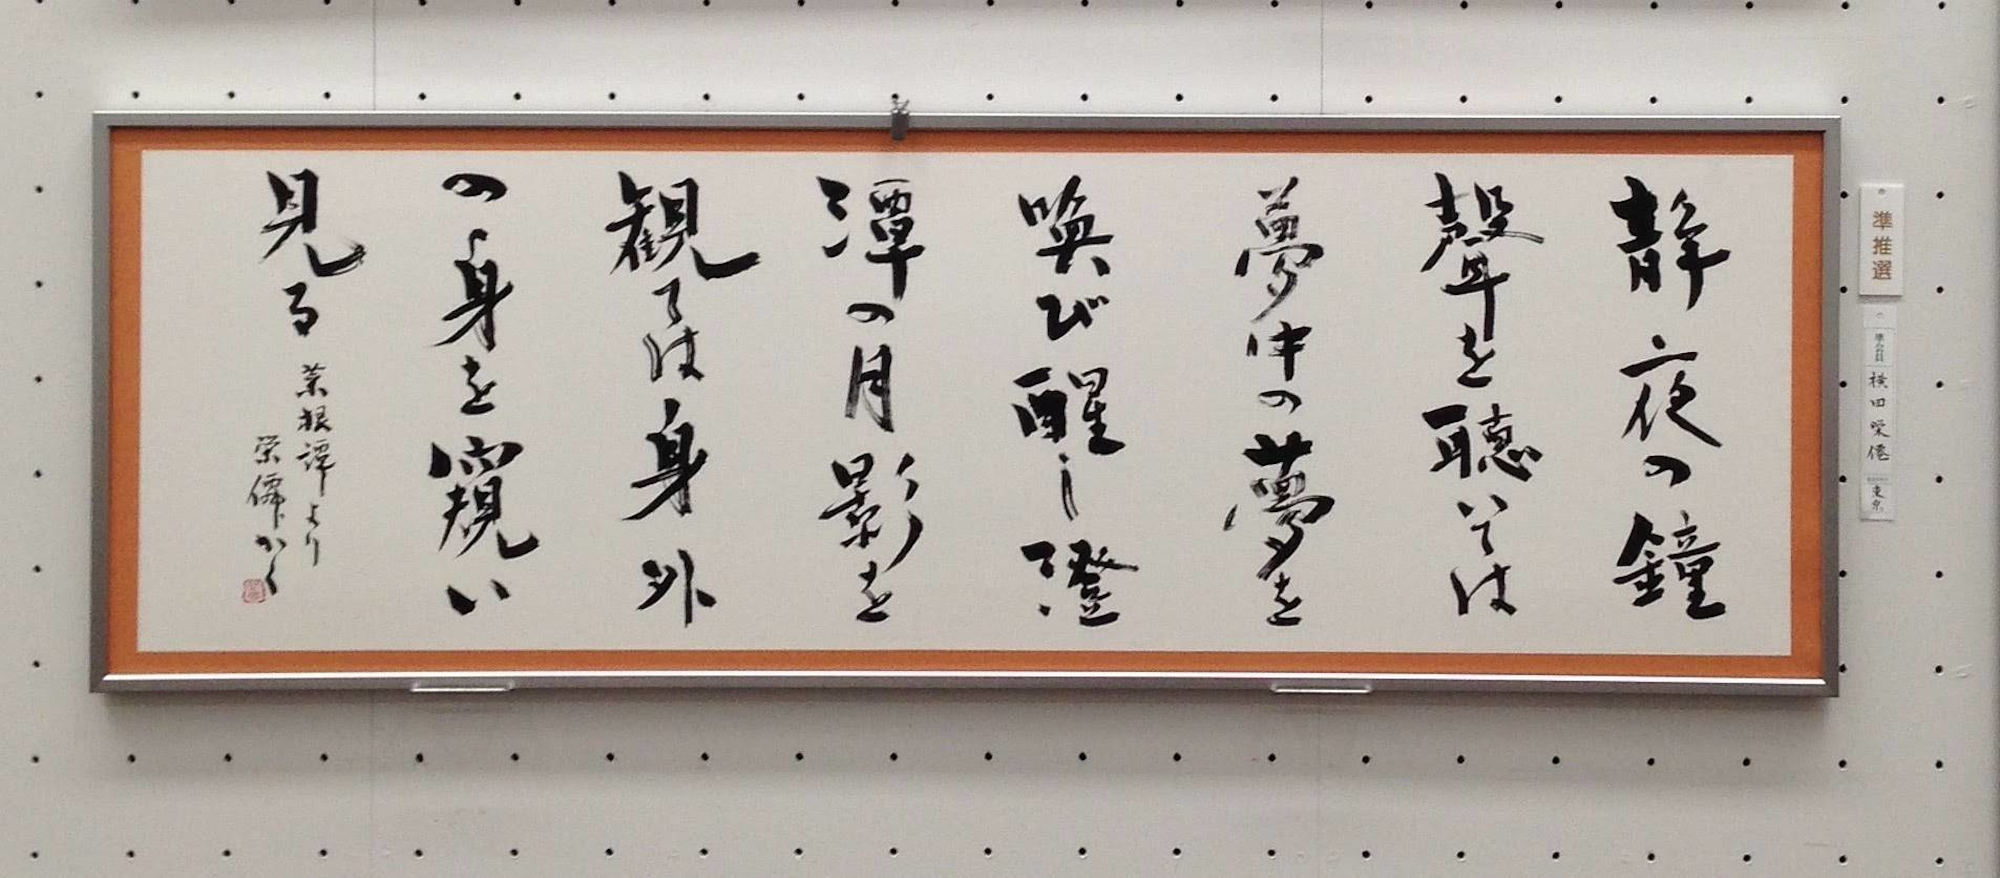 静夜の鐘
聲を聴いては
夢中の夢を
喚び醒し澄
潭の月影を
観ては身外
の身を窺い
見る
菜根譚より
栄儒かく
準推選
準会員
横田栄
東京